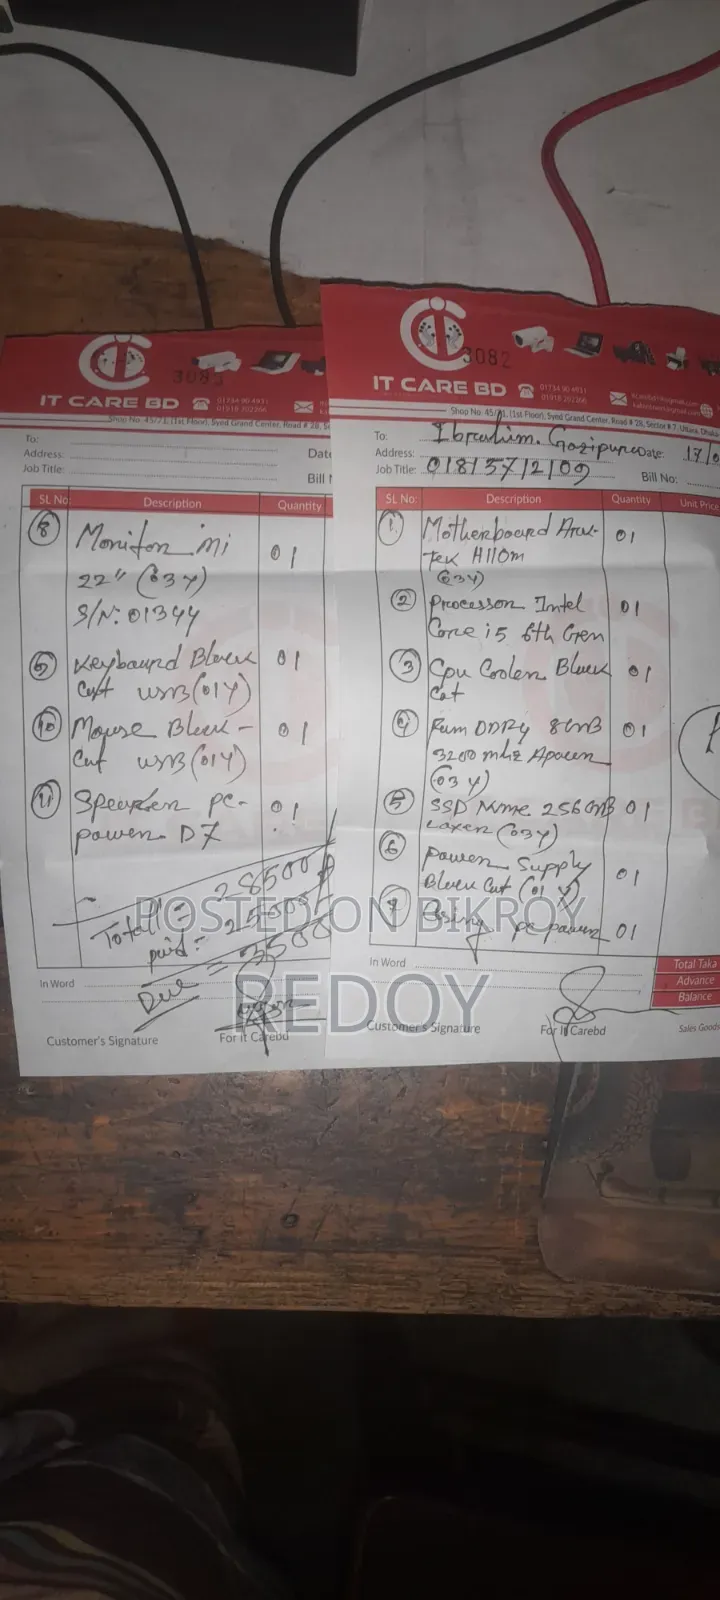 3083
IT CARE BD
01734 90 4931
01918 202266
Shop No: 45/71, (1st Floor), Syed Grand Center, Road # 28, S
To:
Address:
Date
Job Title:
Bill N
SL No:
Description
Quantity
8
Monitor mi
01
22" (03Y)
S/N: 01344
9
Keyboard Black
01
Cat USB (01Y)
10
Mouse Black-
01
Cat USB (01Y)
11
Speaker pc-
01
power D7
Total = 28500
paid = 25000
Due = 3500
In Word
Customer's Signature
For it Carebd
3082
IT CARE BD
01734 90 4931
01918 202266
Shop No: 45/71, (1st Floor), Syed Grand Center, Road # 28, Sector # 7, Uttara, Dhaka
To:
Ibrahim. Gazipur
Address:
Date:
17/0
Job Title:
01815712109
Bill No:
SL No:
Description
Quantity
Unit Price
1
Motherboard
01
H110m
(03Y)
2
Processor Intel
01
Core i5 6th Gen
3
Cpu Cooler Black
01
Cat
4
Ram DDR4 8GB
01
3200 mhz
(03Y)
5
SSD Nvme 256GB
01
(03Y)
6
Power Supply
01
Black Cat (01Y)
7
pc power
01
In Word
Total Taka
Advance
Balance
Customer's Signature
For It Carebd
Sales Goods
POSTED ON BIKROY
REDOY